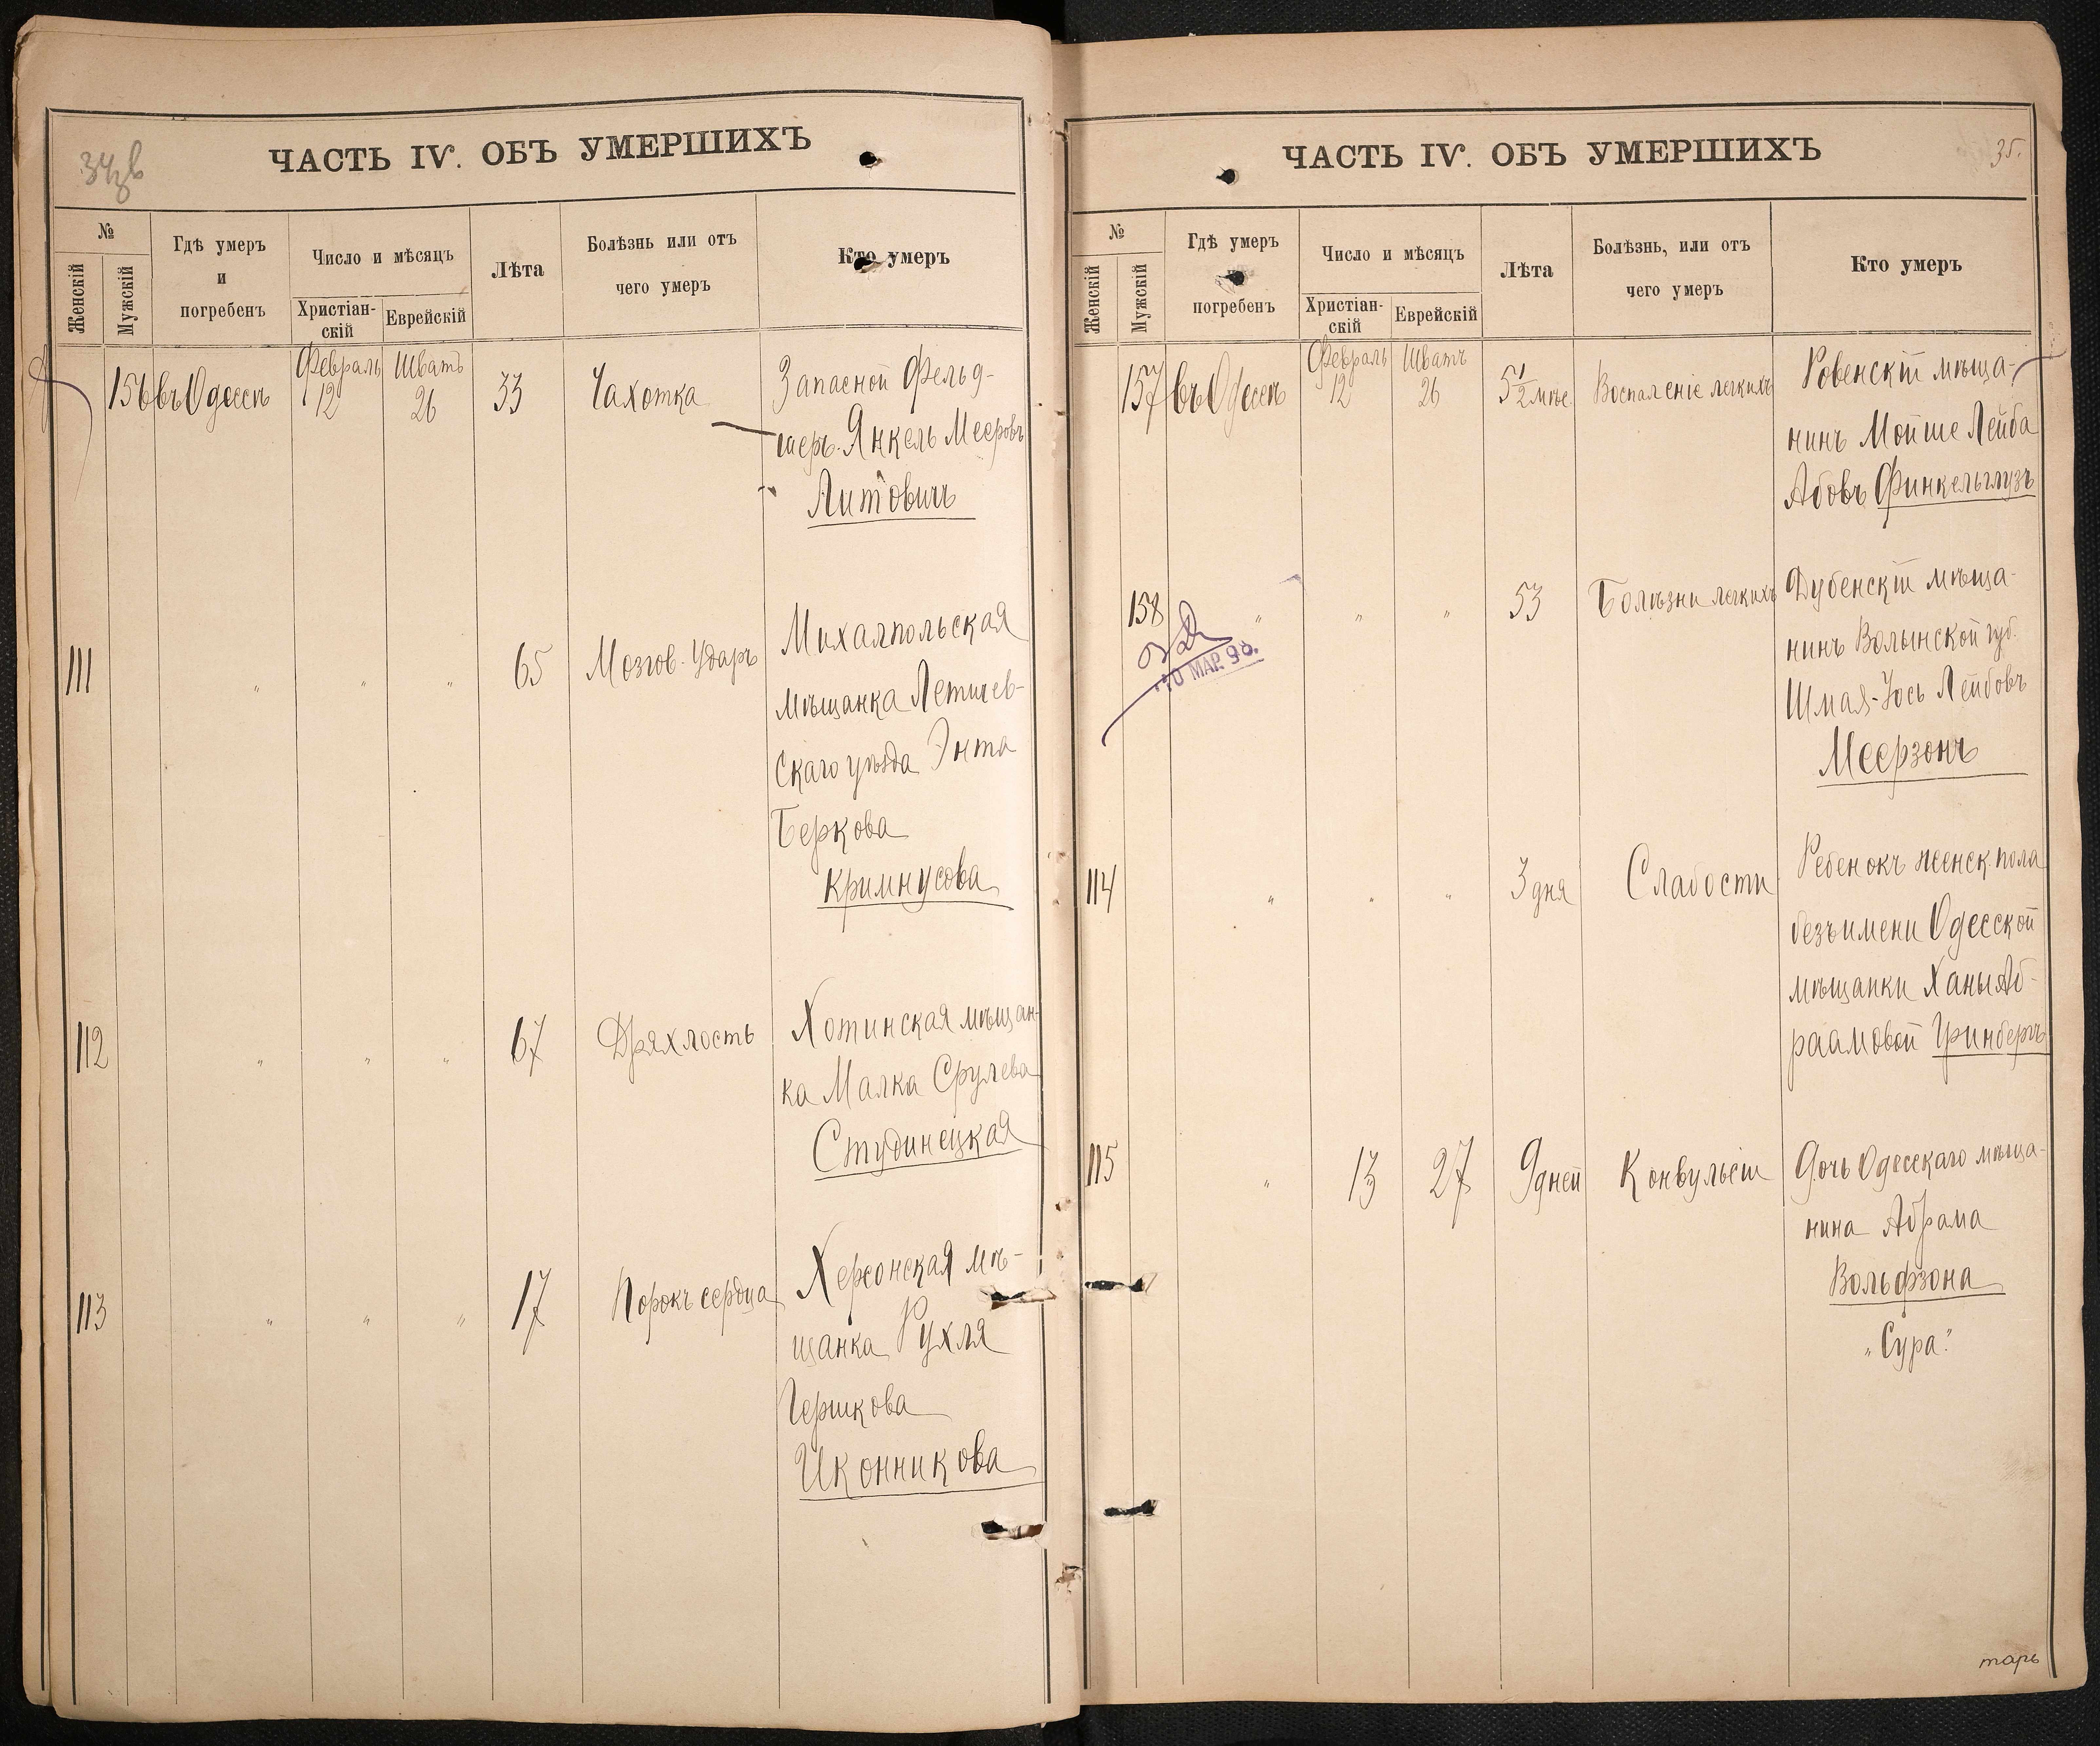 34 об
ЧАСТЬ IV. ОБЪ УМЕРШИХЪ
№
Женскій
Мужскій
Гдѣ умеръ
и
погребенъ
Число и мѣсяцъ
Христіан-
скій
Еврейскій
Лѣта
Болѣзнь или отъ
чего умеръ
Кто умеръ
156 въ Одессѣ Февраль 12 Шватъ 26 33 Чахотка Запасной Фельд-
шеръ Янкель Мееровъ
Литовичъ
111 " " " 65 Мозгов. Ударъ Михалпольская
мѣщанка Летичев-
скаго уѣзда Энта
Беркова
Кримнусова
112 " " " 67 Дряхлость Хотинская мѣщан-
ка Малка Срулева
Студинецкая
113 " " " 17 Порокъ сердца Херсонская мѣ-
щанка Рухля
Гершкова
Иконникова
35.
ЧАСТЬ IV. ОБЪ УМЕРШИХЪ
№
Женскій
Мужскій
Гдѣ умеръ
погребенъ
Число и мѣсяцъ
Христіан-
скій
Еврейскій
Лѣта
Болѣзнь, или отъ
чего умеръ
Кто умеръ
157 въ Одессѣ Февраль 12 Шватъ 26 5 1/2 мѣс. Воспаленіе легкихъ Ровенскій мѣща-
нинъ Мойше Лейба
Абовъ Финкельглузъ
158 " " " 53 Болѣзни легкихъ Дубенскій мѣща-
нинъ Волынской губ.
Шмая-Іось Лейбовъ
Меерзонъ
10 МАР. 96.
114 " " " 3 дня Слабости Ребенокъ женск. пола
безъ имени Одесской
мѣщанки Ханы Аб-
раамовой Гринбергъ
115 " 13 27 9 дней Конвульсіи Дочь Одесскаго мѣща-
нина Абрама
Вольфзона
"Сура".
тарь